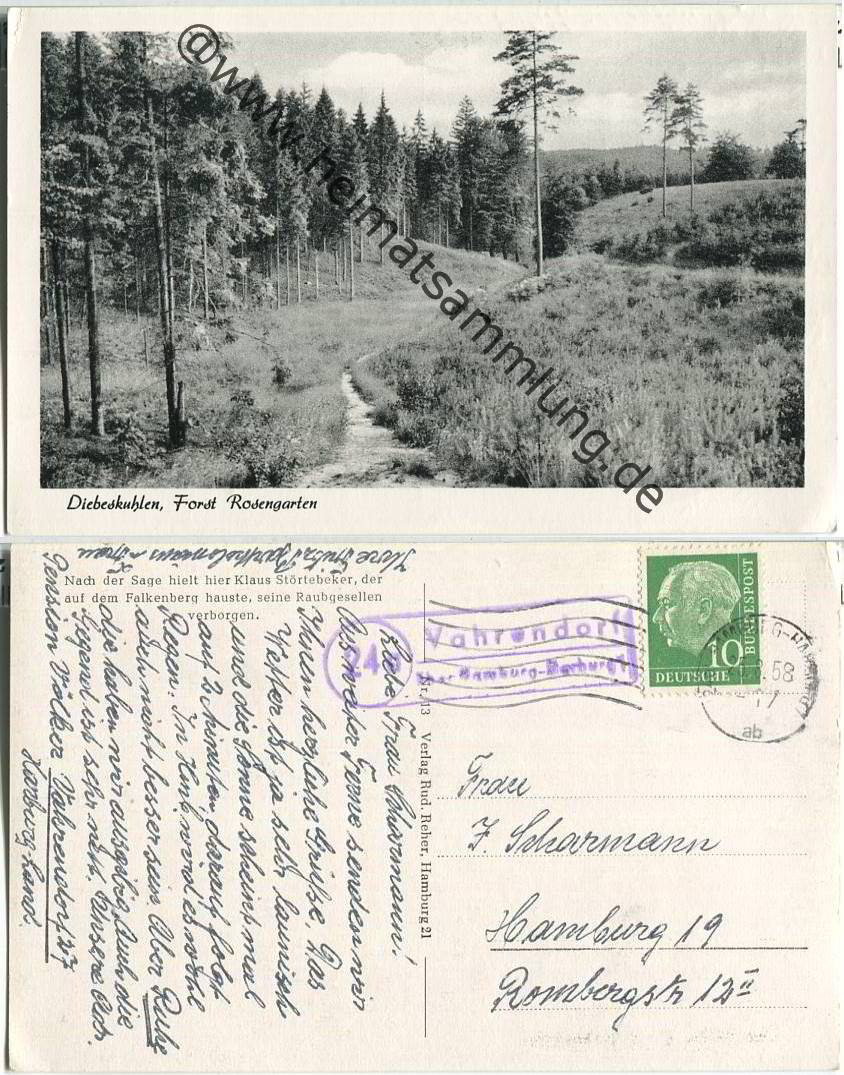 @www.heimatsammlung.de
Diebeskuhlen, Forst Rosengarten
Nach der Sage hielt hier Klaus Störtebeker, der
auf dem Falkenberg hauste, seine Raubgesellen
verborgen.
Liebe Frau Scharmann!
Aus weiter Ferne senden wir
Ihnen herzliche Grüße. Das
Wetter ist ja sehr launisch
und die Sonne scheint mal
auf 2 Minuten, darauf folgt
Regen. In Hmb. wird es wohl
auch nicht besser sein. Aber Ruhe
die haben wir ausgiebig. Auch die
Gegend ist sehr nett. Unsere Adr.
Pension Völker Vahrendorf 27
Harburg-Land.
Ihre Fritz Bartholomäus u. Frau
Nr. 13 Verlag Rud. Reher, Hamburg 21
24a
Vahrendorf
über Hamburg-Harburg 1
10
DEUTSCHE
BUNDESPOST
58
ab
Frau
F. Scharmann
Hamburg 19
Rombergstr 12 II